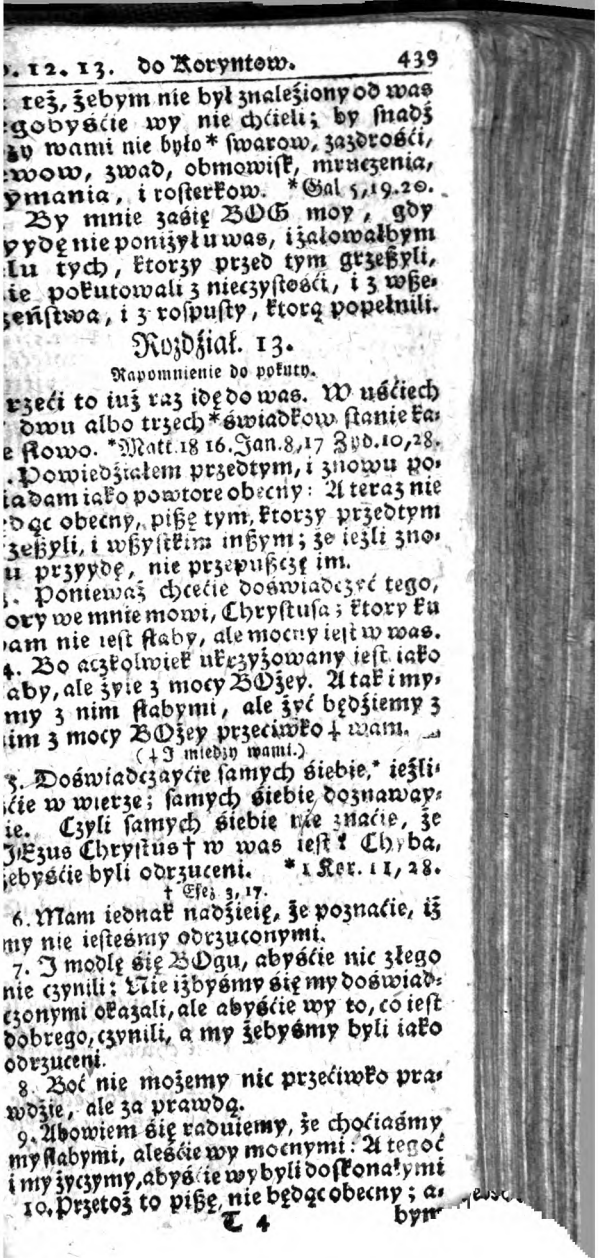 12. 13. do Koryntow. 439
też, żebym nie był znaleźiony od was
gobyśćie wy nie chćieli; by snadź
zy wami nie było * swarow, zazdrośći,
ewow, zwad, obmowisk, mruczenia,
ymania, i rosterkow. *Gal 5,19.20.
By mnie zaśię BOG moy, gdy
yydę nie poniżył u was, i żałowałbym
lu tych, ktorzy przed tym grzeszyli,
ie pokutowali z nieczystośći, i z wsze-
zeństwa, i z rospusty, ktorą popełnili.
Rozdźiał. 13.
Napomnienie do pokuty.
rzeći to iuż raz idę do was. W uśćiech
dwu albo trzech * świadkow stanie ka-
e słowo. *Matt. 18 16. Jan. 8, 17 Żyd. 10, 28.
. Powiedźiałem przedtym, i znowu po-
iadam iako powtore obecny: A teraz nie
ędąc obecny, piszę tym, ktorzy przedtym
zeszyli, i wszystkim inszym; że ieżli zno-
u przyydę, nie przepuszczę im.
3. Ponieważ chcećie doświadczyć tego,
ory we mnie mowi, Chrystusa; ktory ku
wam nie iest słaby, ale mocny iest w was.
4. Bo aczkolwiek ukrzyżowany iest iako
aby, ale żyie z mocy BOżey. A tak i my,
my z nim słabymi, ale żyć będźiemy z
nim z mocy BOżey przećiwko ‡ wam.
(‡ J miedzy wami.)
5. Doświadczayćie samych śiebie, * ieżli-
śćie w wierze; samych śiebie doznaway-
ie. Czyli samych śiebie nie znaćie, że
JEzus Chrystus † w was iest? Chyba,
żebyśćie byli odrzuceni. * 1 Kor. 11, 28.
† Efez 3, 17.
6. Mam iednak nadźieię, że poznaćie, iż
my nie iesteśmy odrzuconymi.
7. J modlę śię BOgu, abyśćie nic złego
nie czynili; Nie iżbyśmy śię my doświad-
czonymi okazali, ale abyśćie wy to, co iest
dobrego, czynili, a my żebyśmy byli iako
odrzuceni.
8. Boć nie możemy nic przećiwko pra-
wdźie, ale za prawdą.
9. Abowiem śię raduiemy, że choćiaśmy
my słabymi, aleśćie wy mocnymi: A tegoć
i my życzymy, abyśćie wy byli doskonałymi
10. Przetoż to piszę, nie będąc obecny; a-
T 4 bym